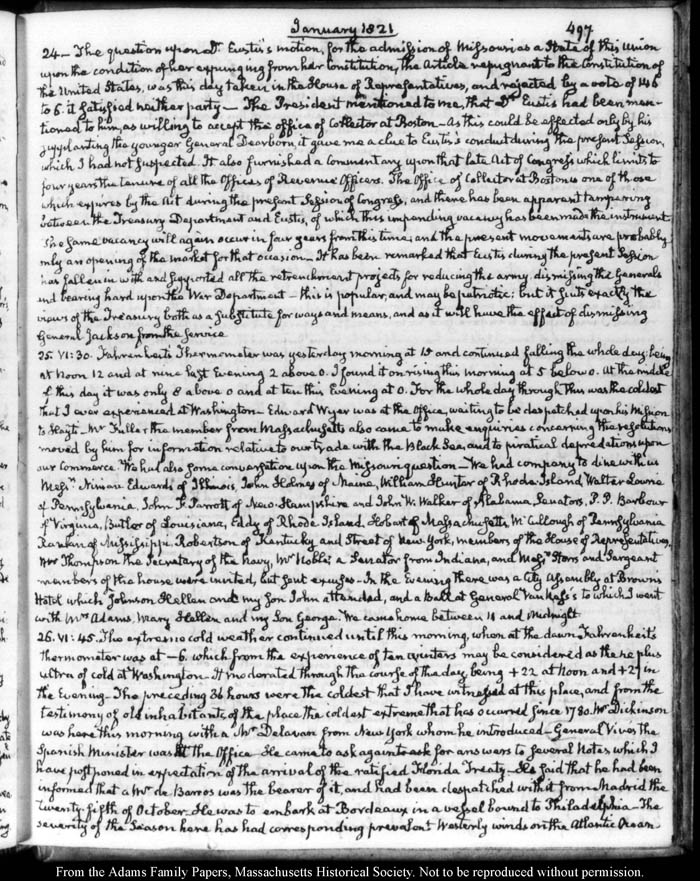 January 1821
497
24_ The question upon Dr. Eustis's motion, for the admission of Missouri as a State of this Union
upon the condition of her expunging from her Constitution, the Article repugnant to the Constitution of
the United States, was this day taken in the House of Representatives, and rejected by a vote of 146
to 6. it satisfied neither party_ The President mentioned to me, that Dr. Eustis had been men-
tioned to him, as willing to accept the office of Collector at Boston_ As this could be effected only by his
supplanting the younger General Dearborn, it gave me a clue to Eustis's conduct during the present Session,
which I had not suspected. It also furnished a Commentary upon that late Act of Congress which limits to
four years the tenure of all the Offices of Revenue Officers. The Office of Collector at Boston is one of those
which expires by the Act during the present Session of Congress, and there has been apparent tampering
between the Treasury Department and Eustis, of which this impending vacancy has been made the instrument
The same vacancy will again occur in four years from this time; and the present movements are probably
only an opening of the market for that occasion_ It has been remarked that Eustis during the present Session
has fallen in with and supported all the retrenchment projects for reducing the army, dismissing the Generals
and bearing hard upon the War Department_ this is popular, and may be patriotic; but it suits exactly the
views of the Treasury both as a substitute for ways and means, and as it will have the effect of dismissing
General Jackson from the Service
25. VI:30. Fahrenheit's Thermometer was yesterday morning at 15 and continued falling the whole day; being
at Noon 12 and at nine last Evening 2 above 0. I found it on rising this morning at 5 below 0. At the middle
of this day it was only 8 above 0 and at ten this Evening at 0. For the whole day through this was the coldest
that I ever experienced at Washington_ Edward Wyer was at the Office, waiting to be despatched upon his Mission
to Hayti_ Mr Fuller the member from Massachusetts also came to make enquiries concerning the resolutions
moved by him for information relative to our trade with the Black Sea, and to piratical depredations upon
our Commerce. We had also some conversation upon the Missouri question_ We had company to dine with us
Messrs. Ninian Edwards of Illinois, John Holmes of Maine, William Hunter of Rhode Island Walter Lowrie
of Pennsylvania, John F. Parrott of New-Hampshire and John W. Walker of Alabama Senators, P. P. Barbour
of Virginia, Butler of Louisiana, Eddy of Rhode Island, Hobart of Massachusetts, McCullough of Pennsylvania
Rankin of Mississippi Robertson of Kentucky and Street of New-York, members of the House of Representatives.
Mr Thompson the Secretary of the Navy, Mr Noble a Senator from Indiana, and Messrs Storrs and Sergeant
members of the house were invited, but sent excuses_ In the Evening there was a City Assembly at Browns
Hotel which Johnson Hellen and my Son John attended, and a Ball at General Van Ness's to which I went
with Mrs Adams, Mary Hellen and my Son George. We came home between 11 and Midnight
26. VI:45. The extreme cold weather continued until this morning, when at the dawn Fahrenheit's
thermometer was at -6. which from the experience of ten winters may be considered as the ne plus
ultra of cold at Washington_ It moderated through the course of the day, being +22 at Noon and +21 in
the Evening_ The preceding 36 hours were the coldest that I have witnessed at this place, and from the
testimony of old inhabitants of the place the coldest extreme that has occurred since 1780. Mr. Dickinson
was here this morning with a Mr. Delavan from New York whom he introduced_ General Vives the
Spanish Minister was at the Office He came to ask again to ask for answers to several Notes which I
have postponed in expectation of the arrival of the ratified Florida Treaty_ He said that he had been
informed that a Mr de Barros was the bearer of it, and had been despatched with it from Madrid the
twenty-fifth of October_ He was to embark at Bordeaux in a vessel bound to Philadelphia_ The
severity of the Season here has had corresponding prevalent Westerly winds on the Atlantic Ocean
From the Adams Family Papers, Massachusetts Historical Society. Not to be reproduced without permission.